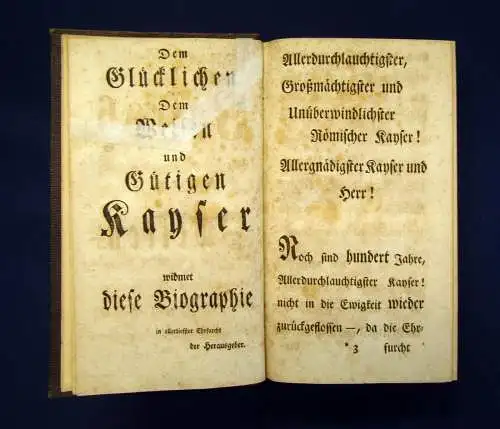 Dem
Glücklichen
Dem
Weisen
und
Gütigen
Kayser
widmet
diese Biographie
in allertiefster Ehrfurcht
der Herausgeber.
Allerdurchlauchtigster,
Großmächtigster und
Unüberwindlichster
Römischer Kayser!
Allergnädigster Kayser und
Herr!
Noch sind hundert Jahre,
Allerdurchlauchtigster Kayser!
nicht in die Ewigkeit wieder
zurückgeflossen —, da die Ehr-
* 3 furcht